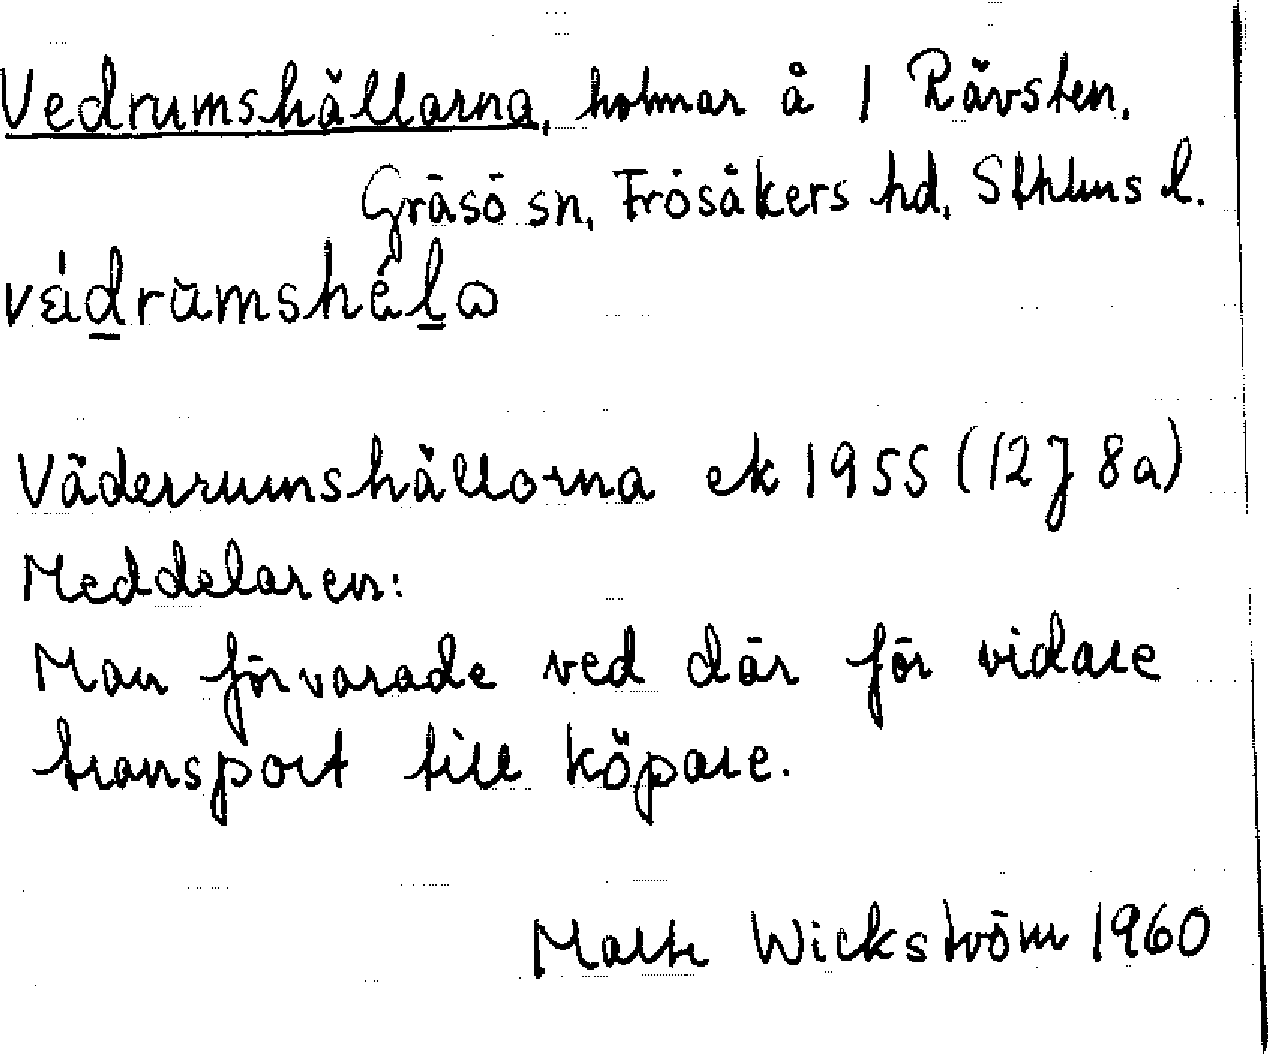 Vedrumshällarna, holmar å 1 Rävsten,
Gräsö sn, Frösåkers hd, Sthlms l.
vèdrŭmshéla
Väderrumshällorna ek 1955 (12J 8a)
Meddelaren:
Man förvarade ved där för vidare
transport till köpare.
Malte Wickström 1960